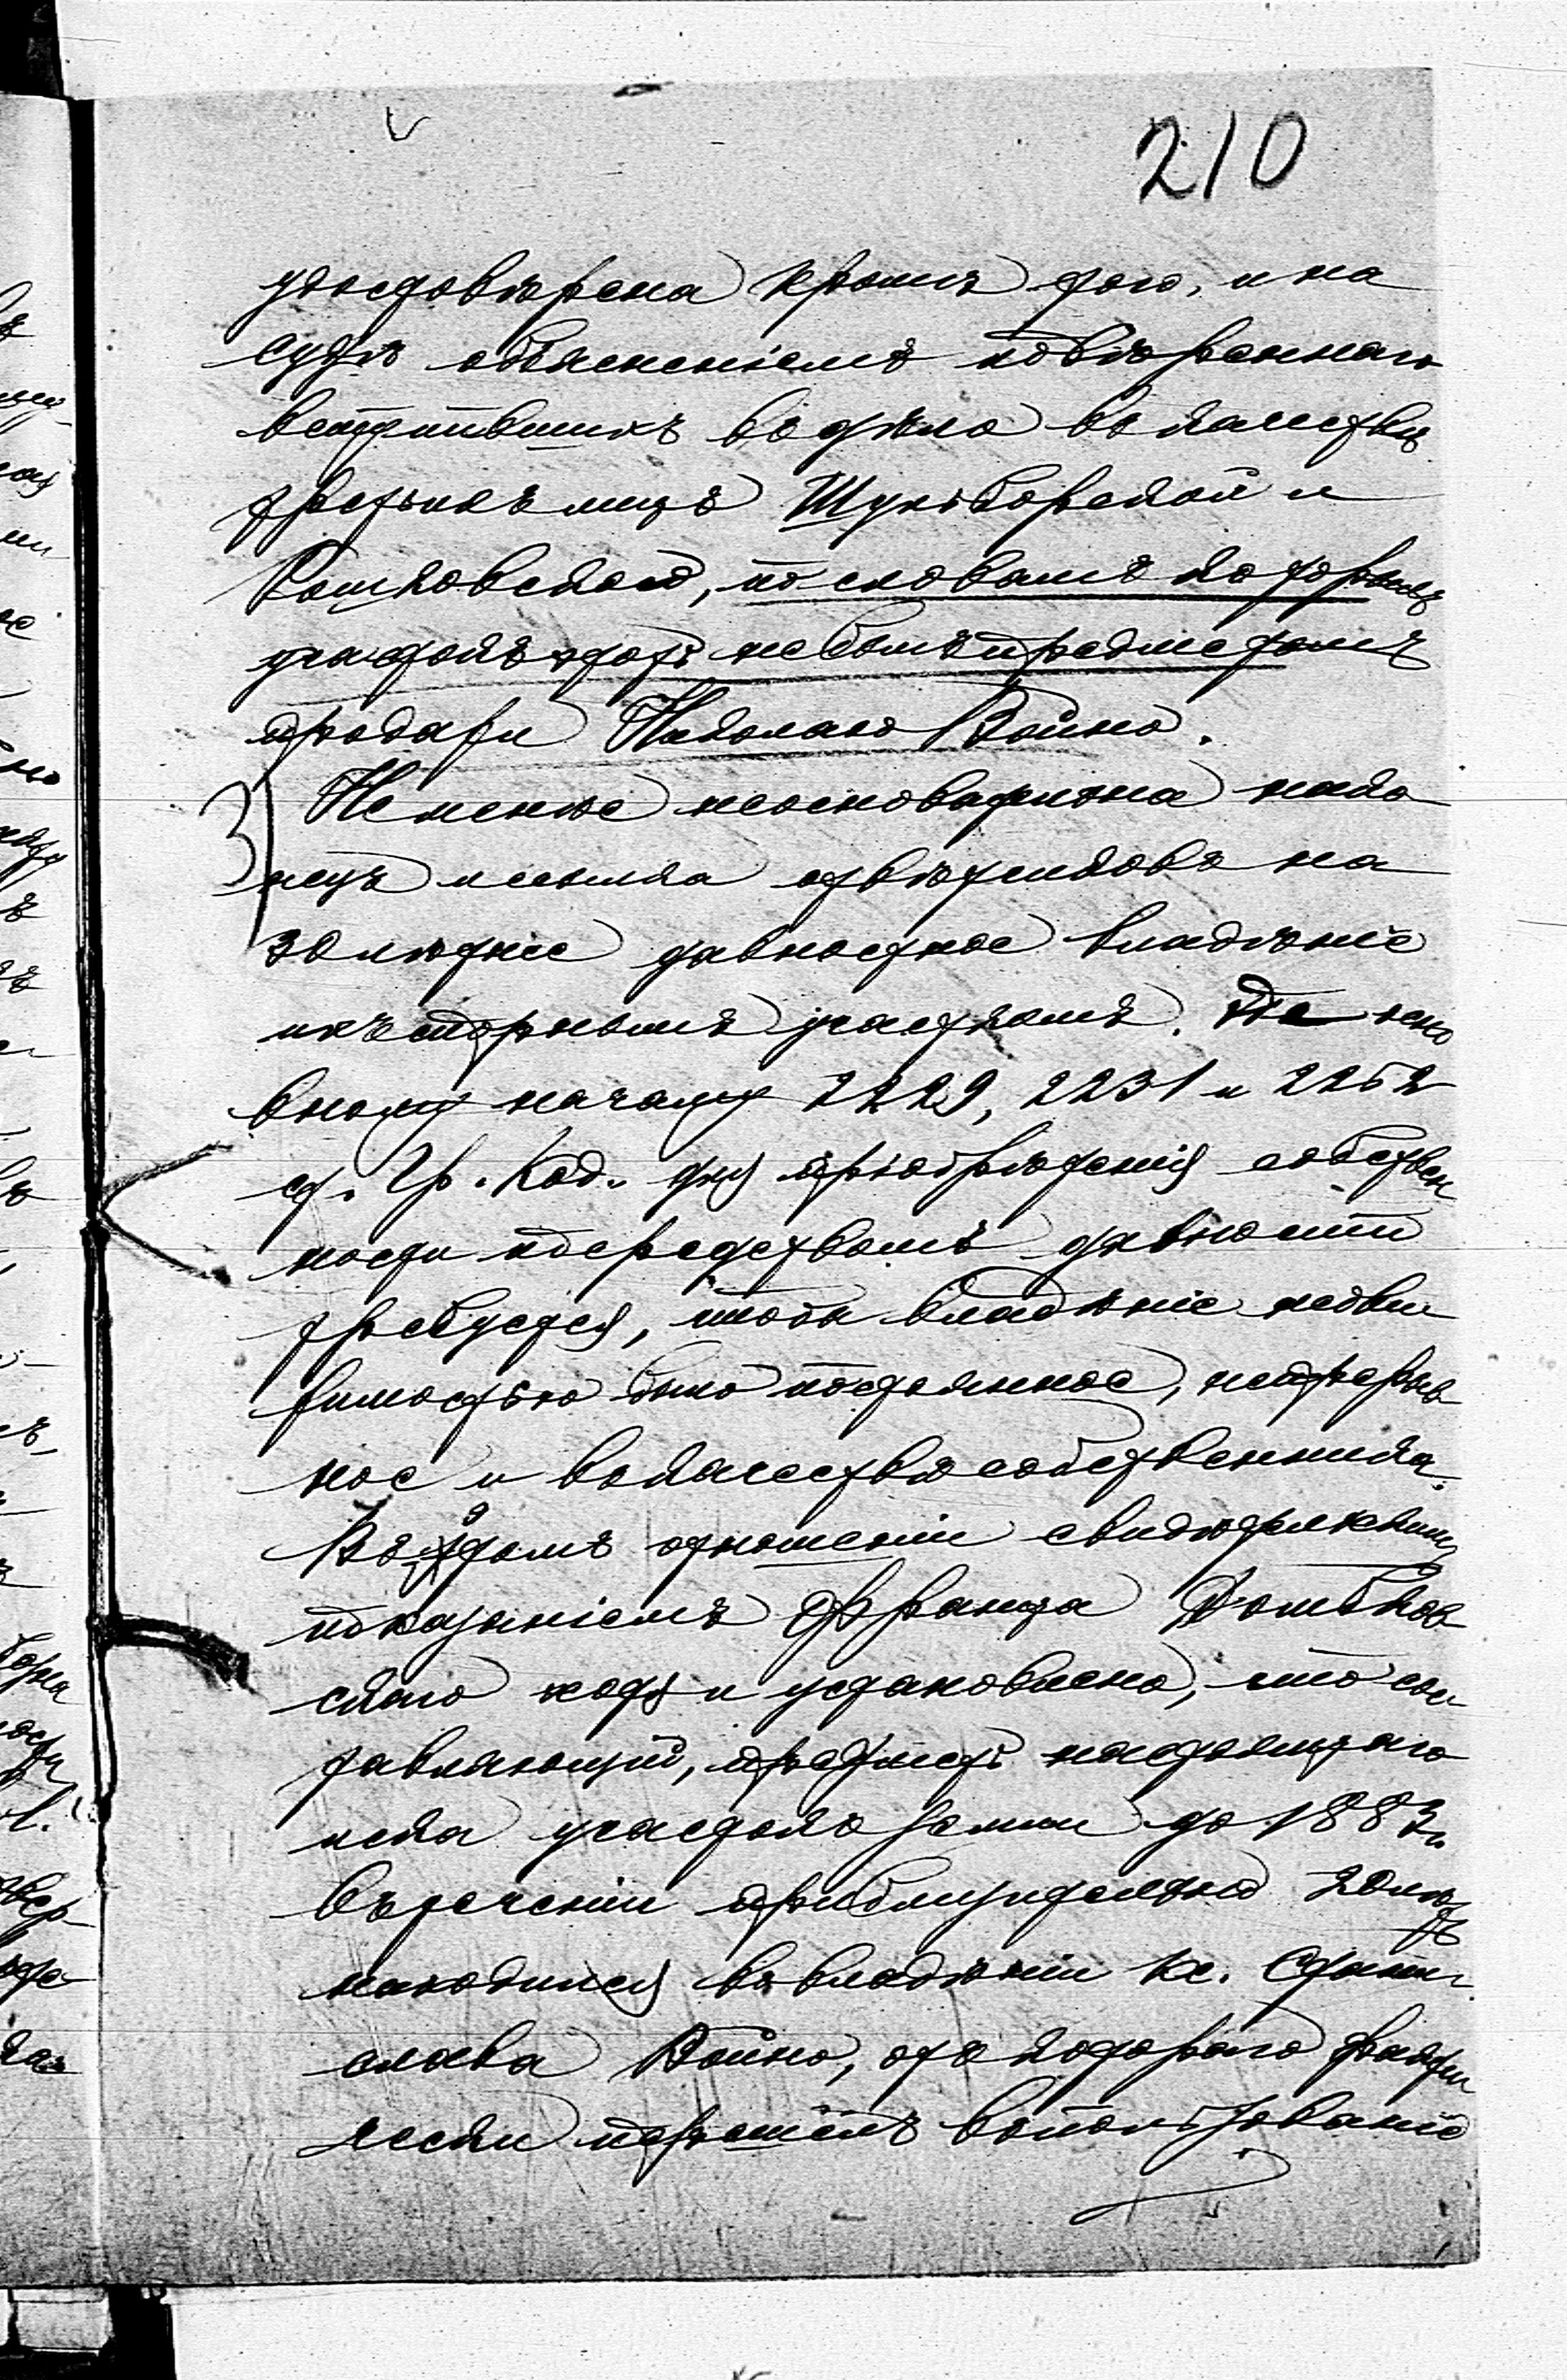 210
удостовѣрена кромѣ того, и на
судѣ объясненіемъ повѣреннаго
вступившихъ въ дѣло въ качествѣ
третьихъ лицъ Шульборской и
по словамъ которыхъ
участокъ этотъ не былъ предметомъ
продажи Николаю Война.
3) Не менѣе неосновательна нако
нецъ и ссылка отвѣтчиковъ на
30 лѣтнее давностное владѣніе
ихъ спорнымъ участкомъ. По осно
вному началу 2229, 2231 и 2262
ст. Гр. Код. для пріобрѣтенія собствен
ности посредствомъ давности
требуется, чтобы владѣніе недви
жимостью было постоянное, непрерыв
ное и въ качествѣ собственника.
Въ этомъ отношеніи свидѣтельскимъ
показаніемъ Франца Домбков
скаго хотя и установлено, что сос
тавляющій, предметъ настоящаго
иска участокъ земли до 1883 г.
въ теченіи приблизительно 20 лѣтъ
находился въ владѣніи Кс. Стани
слава Война, отъ котораго факти
чески перешелъ въ пользованіе